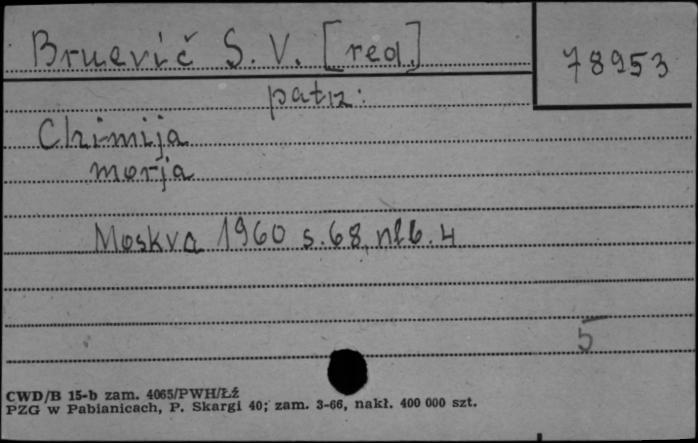 Bruevič S. V. [red.]
78953
patrz:
Chimija
morja
Moskva 1960 s. 68, nlb. 4
5
CWD/B 15-b zam. 4065/PWH/Łź
PZG w Pabianicach, P. Skargi 40; zam. 3-66, nakł. 400 000 szt.